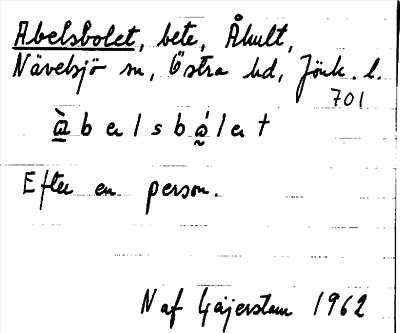 Abelsbolet, bete, Åhult,
Nävelsjö sn, Östra hd, Jönk. l.
701
àbelsbɷ̰́let
Efter en person.
N af Geijerstam 1962